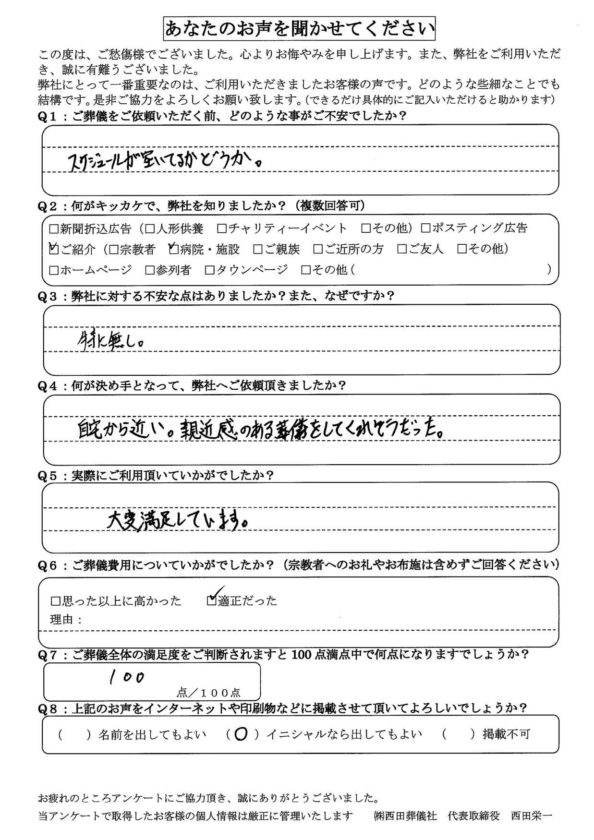 あなたのお声を聞かせてください
この度は、ご愁傷様でございました。心よりお悔やみを申し上げます。また、弊社をご利用いただ
き、誠に有難うございました。
弊社にとって一番重要なのは、ご利用いただきましたお客様の声です。どのような些細なことでも
結構です。是非ご協力をよろしくお願い致します。（できるだけ具体的にご記入いただけると助かります）
Q1：ご葬儀をご依頼いただく前、どのような事がご不安でしたか？
スケジュールが空いてるかどうか。
Q2：何がキッカケで、弊社を知りましたか？（複数回答可）
□新聞折込広告（□人形供養 □チャリティーイベント □その他）□ポスティング広告
☑ご紹介（□宗教者 ☑病院・施設 □ご親族 □ご近所の方 □ご友人 □その他）
□ホームページ □参列者 □タウンページ □その他（ ）
Q3：弊社に対する不安な点はありましたか？また、なぜですか？
特に無し。
Q4：何が決め手となって、弊社へご依頼頂きましたか？
自宅から近い。親近感のある葬儀をしてくれそうだった。
Q5：実際にご利用頂いていかがでしたか？
大変満足しています。
Q6：ご葬儀費用についていかがでしたか？（宗教者へのお礼やお布施は含めずご回答ください）
□思った以上に高かった ☑適正だった
理由：
Q7：ご葬儀全体の満足度をご判断されますと100点満点中で何点になりますでしょうか？
100
点／１００点
Q8：上記のお声をインターネットや印刷物などに掲載させて頂いてよろしいでしょうか？
（ ）名前を出してもよい （○）イニシャルなら出してもよい （ ）掲載不可
お疲れのところアンケートにご協力頂き、誠にありがとうございました。
当アンケートで取得したお客様の個人情報は厳正に管理いたします ㈱西田葬儀社 代表取締役 西田栄一